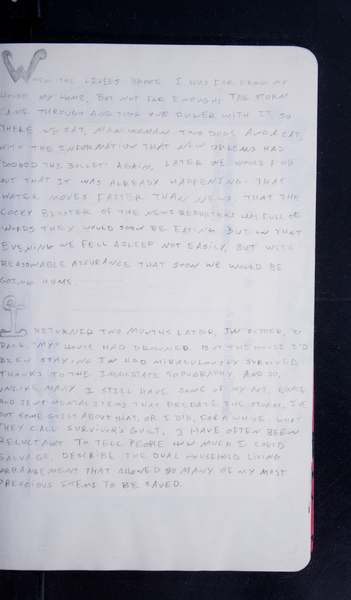 WHEN THE LEVEES BROKE I WAS FAR FROM MY
HOUSE MY HOME, BUT NOT FAR ENOUGH. THE STORM
CAME THROUGH AND TOOK OUR POWER WITH IT, SO
THERE WE SAT, MAN WOMAN TWO DOGS AND A CAT,
WITH THE INFORMATION THAT NEW ORLEANS HAD
DODGED THE BULLET AGAIN. LATER WE WOULD FIND
OUT THAT IT WAS ALREADY HAPPENING. THAT
WATER MOVES FASTER THAN NEWS. THAT THE
COCKY BLUSTER OF THE NEWS REPORTERS WAS FULL OF
WORDS THEY WOULD SOON BE EATING. BUT ON THAT
EVENING WE FELL ASLEEP NOT EASILY, BUT WITH
REASONABLE ASSURANCE THAT SOON WE WOULD BE
GOING HOME.
I RETURNED TWO MONTHS LATER, IN OCTOBER, TO
PACK. MY HOUSE HAD DROWNED. BUT THE HOUSE I'D
BEEN STAYING IN HAD MIRACULOUSLY SURVIVED,
THANKS TO THE IMMEDIATE TOPOGRAPHY. AND SO,
UNLIKE MANY I STILL HAVE SOME OF MY
AND SENTIMENTAL ITEMS THAT PREDATE THE STORM. I'VE
GOT SOME GUILT ABOUT THAT, OR I DID, FOR A WHILE. WHAT
THEY CALL SURVIVOR'S GUILT. I HAVE OFTEN BEEN
RELUCTANT TO TELL PEOPLE HOW MUCH I COULD
SALVAGE. DESCRIBE THE DUAL HOUSEHOLD LIVING
ARRANGEMENT THAT ALLOWED SO MANY OF MY MOST
PRESCIOUS ITEMS TO BE SAVED.